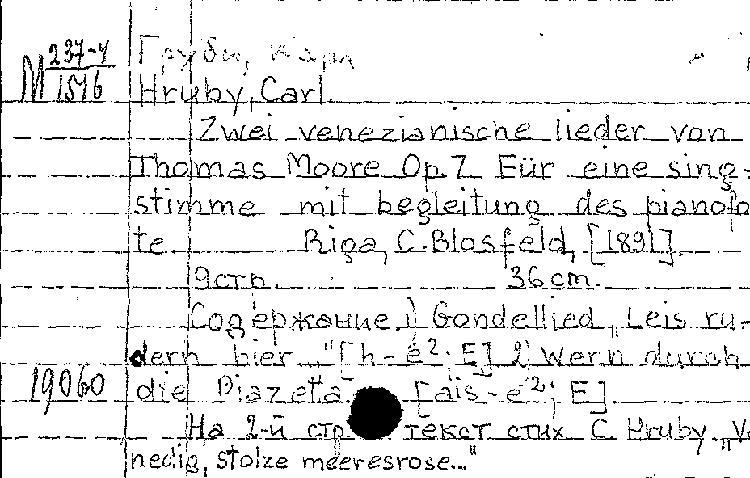 М 237-4
1516
Грубы, Карл
Hruby, Carl
Zwei venezianische lieder von
Thomas Moore Op.7 Für eine sing-
stimme mit begleitung des pianofo
te Riga, C. Blosfeld, [1891].
9стр. 36 cm.
Содержание. 1) Gondellied „Leis ru-
dern hier..." [h-e²; E] 2) Wern durch
19060
die Piazetta [ais-e²; E]
На 2-й стр текст стих C. Hruby. „Ve
nedig, stolze meeresrose..."